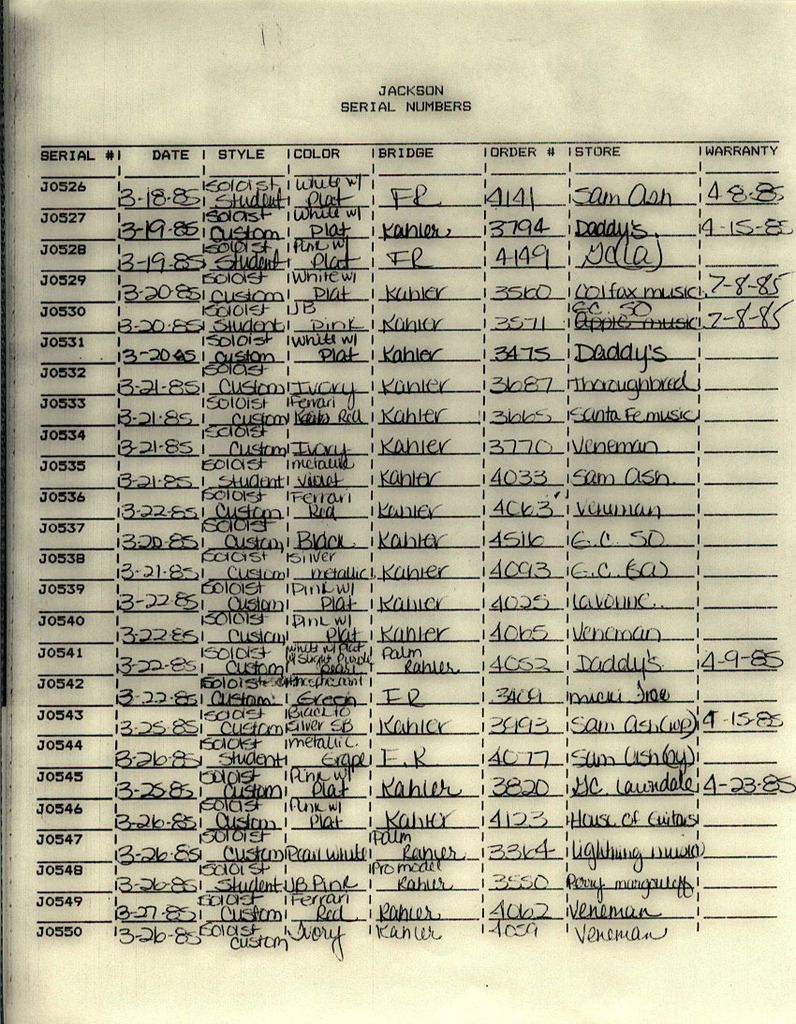 JACKSON
SERIAL NUMBERS
SERIAL # DATE STYLE COLOR BRIDGE ORDER # STORE WARRANTY
J0526 3-18-85 Soloist Student White w/ Plat FR 4141 Sam Ash 4-8-85
J0527 3-19-85 Soloist Custom White w/ Plat Kahler 3794 Daddy's 4-15-85
J0528 3-19-85 Soloist Student Pink w/ Plat FR 4149 GC(la)
J0529 3-20-85 Soloist Custom White w/ Plat Kahler 3560 Colfax music 7-8-85
J0530 3-20-85 Soloist Student JB Pink Kahler 3571 G.C. SD Apple music 7-8-85
J0531 3-20-85 Soloist Custom White w/ Plat Kahler 3475 Daddy's
J0532 3-21-85 Soloist Custom Ivory Kahler 3687 Thoroughbred
J0533 3-21-85 Soloist Custom Ferrari Red Kahler 3665 Santa Fe music
J0534 3-21-85 Soloist Custom Ivory Kahler 3770 Veneman
J0535 3-21-85 Soloist Student metallic Violet Kahler 4033 Sam Ash
J0536 3-22-85 Soloist Custom Ferrari Red Kahler 4063 Veneman
J0537 3-20-85 Soloist Custom Black Kahler 4516 G.C. SD
J0538 3-21-85 Soloist Custom Silver metallic Kahler 4093 G.C. (la)
J0539 3-22-85 Soloist Custom Pink w/ Plat Kahler 4025 Lavonne
J0540 3-22-85 Soloist Custom Pink w/ Plat Kahler 4065 Veneman
J0541 3-22-85 Soloist Custom White w/ Plat Purple Pearl Palm Kahler 4052 Daddy's 4-9-85
J0542 3-22-85 Soloist Custom Green FR 3409
J0543 3-25-85 Soloist Custom Black to Silver SB Kahler 3993 Sam Ash(wp) 4-15-85
J0544 3-26-85 Soloist Student metallic Grape F.R 4077 Sam Ash(by)
J0545 3-25-85 Soloist Custom Pink w/ Plat Kahler 3820 GC Lawndale 4-23-85
J0546 3-26-85 Soloist Custom Pink w/ Plat Kahler 4123 House of Guitars
J0547 3-26-85 Soloist Custom Pearl White Palm Kahler 3364 Lightning music
J0548 3-26-85 Soloist Student JB Pink Pro model Kahler 3550 Perry margouleff
J0549 3-27-85 Soloist Custom Ferrari Red Kahler 4062 Veneman
J0550 3-26-85 Soloist Custom Ivory Kahler 4059 Veneman